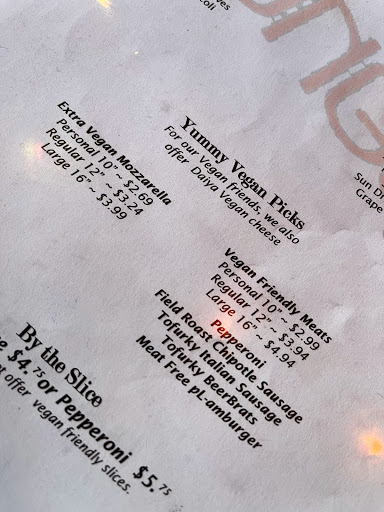 oli
Yummy Vegan Picks
For our Vegan friends, we also
offer Daiya Vegan cheese
Extra Vegan Mozzarella
Personal 10" ~ $2.69
Regular 12" ~ $3.24
Large 16" ~ $3.99
Sun
Grape
Vegan Friendly Meats
Personal 10" ~ $2.99
Regular 12" ~ $3.94
Large 16" ~ $4.94
Pepperoni
Field Roast Chipotle Sausage
Tofurky Italian Sausage
Tofurky BeerBrats
Meat Free pL-amburger
By the Slice
$4.75 or Pepperoni $5.75
offer vegan friendly slices.